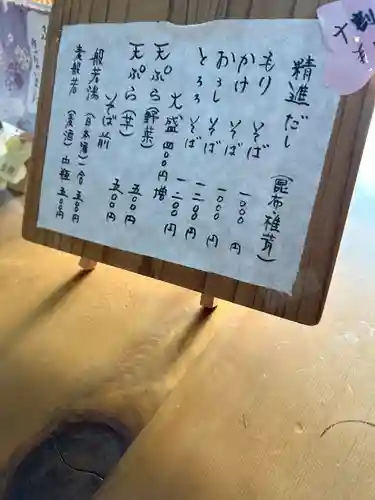 精進だし
(昆布・椎茸)
もり そば 一〇〇〇円
かけ そば 一〇〇〇円
おろし そば 一二〇〇円
とろろ そば 一二〇〇円
大盛 四〇〇円増
天ぷら (野菜) 五〇〇円
天ぷら (芋) 五〇〇円
そば前
般若湯 (日本酒) 一合 五〇〇円
麦般若 (麦酒) 小極 五〇〇円